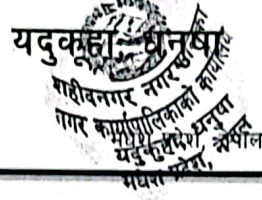 यदुकूहा, धनुषा
शहीदनगर नगरपालिका
नगर कार्यपालिकाको कार्यालय
यदुकुहा, धनुषा
मधेश प्रदेश, नेपाल